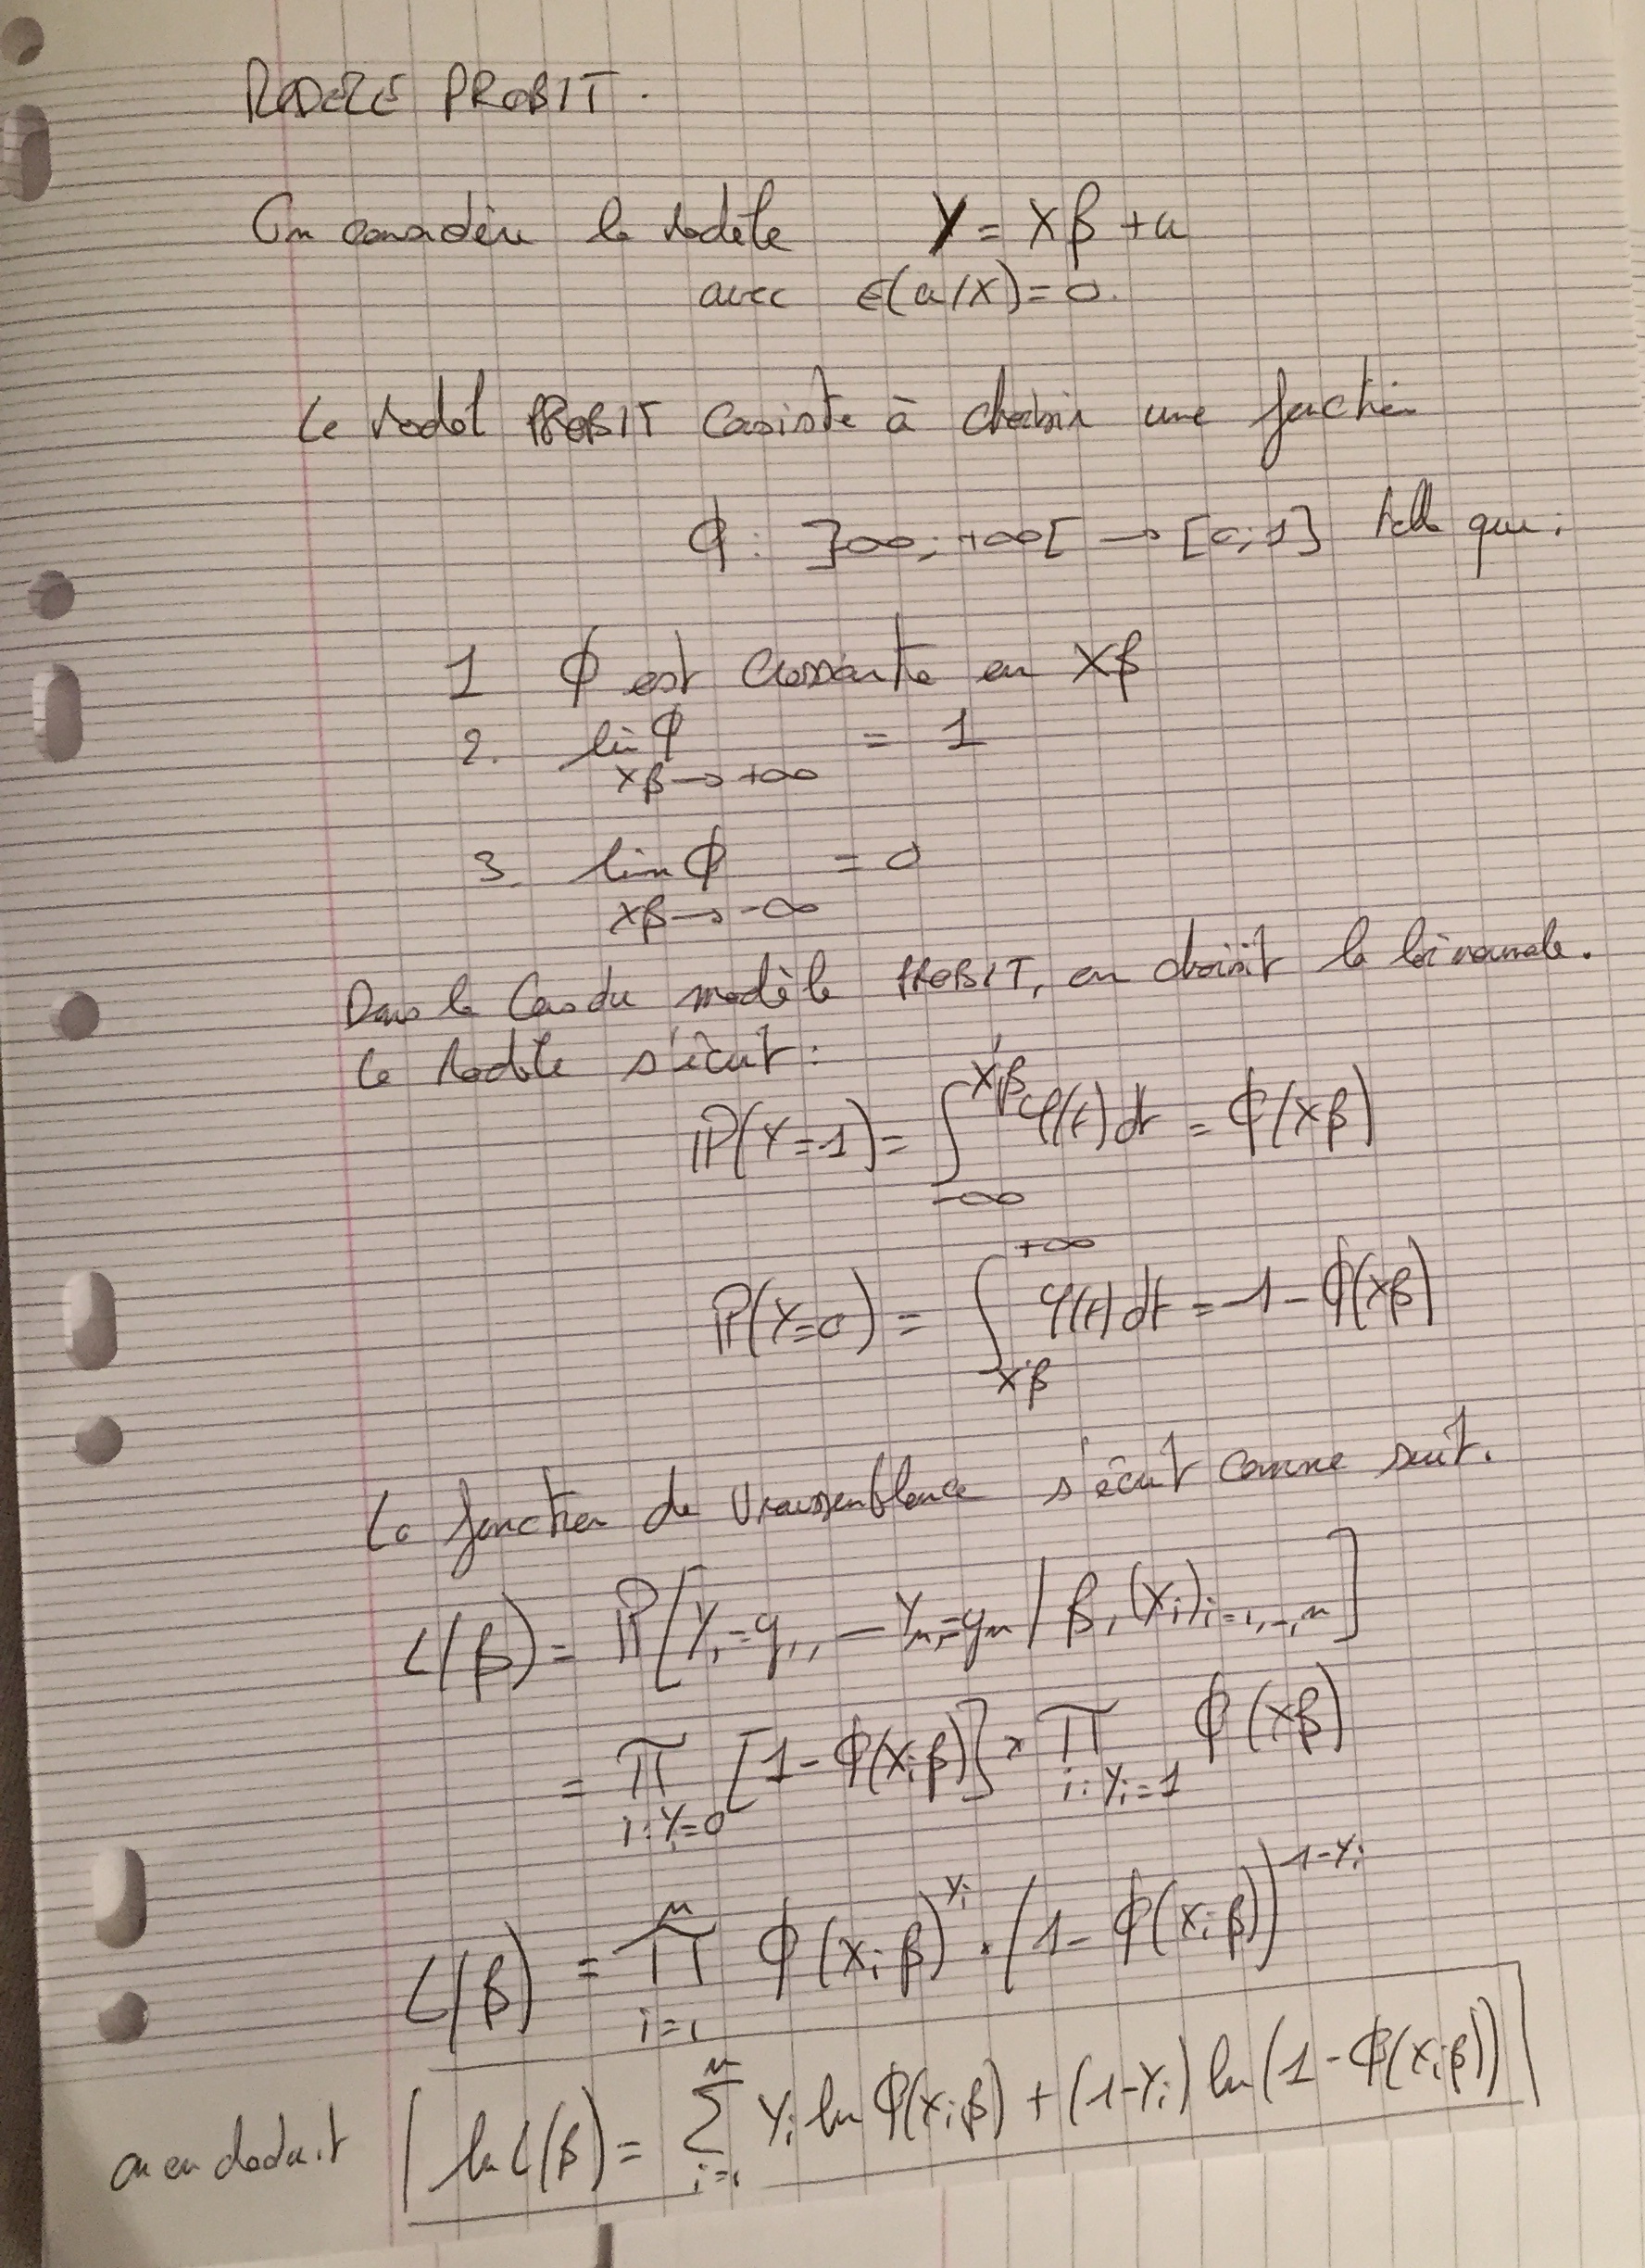 MODELE PROBIT.
On considère le modèle Y = Xβ + u
avec E(u/X) = 0.
Le model PROBIT consiste à choisir une fonction
ϕ : ]∞; +∞[ → [0; 1] telle que :
1 ϕ est croissante en Xβ
2. lim ϕ = 1
Xβ → +∞
3. lim ϕ = 0
Xβ → -∞
Dans le cas du modèle PROBIT, on choisit la loi normale.
Le modèle s'écrit :
ℙ(Y=1) = ∫_{-∞}^{X'β} φ(t) dt = ϕ(Xβ)
ℙ(Y=0) = ∫_{Xβ}^{+∞} φ(t) dt = 1 - ϕ(Xβ)
La fonction de vraissemblance s'écrit comme suit.
L(β) = ℙ[Y₁=y₁, — Yₙ=yₙ / β, (Xᵢ)ᵢ₌₁,...,ₙ]
= ∏_{i:Yᵢ=0} [1 - ϕ(Xᵢβ)] × ∏_{i:Yᵢ=1} ϕ(Xβ)
L(β) = ∏_{i=1}^{n} ϕ(Xᵢβ)^{Yᵢ} . (1 - ϕ(Xᵢβ))^{1-Yᵢ}
on en deduit ln L(β) = ∑_{i=1}^{n} Yᵢ ln ϕ(Xᵢβ) + (1-Yᵢ) ln(1 - ϕ(Xᵢβ))